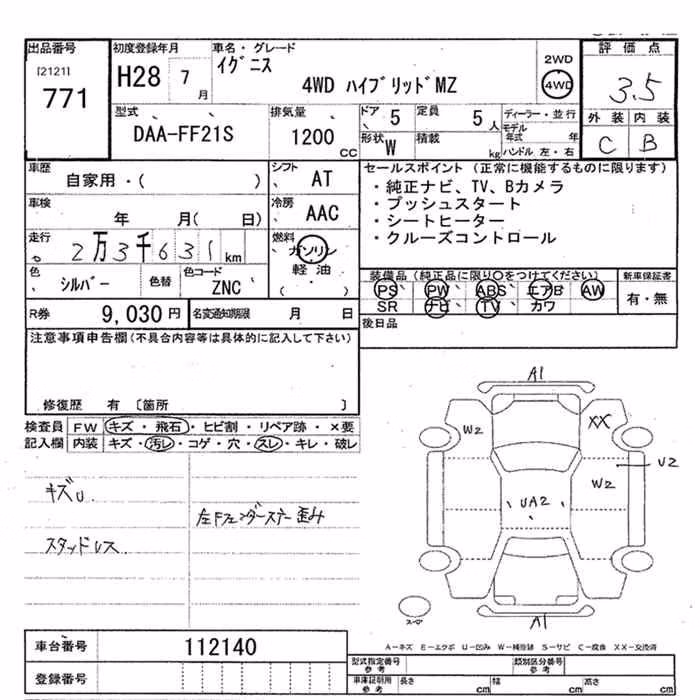 出品番号
[2121]
771
初度登録年月
H28 7 月
車名・グレード
イグニス
4WD ハイブリッドMZ
2WD
4WD
評価点
3.5
外装 内装
C B
型式
DAA-FF21S
排気量
1200 CC
ドア 5
定員 5 人
形状 W
積載 kg
ディーラー・並行
モデル年式 年
ハンドル 左・右
車歴
自家用・( )
シフト
AT
車検
年 月( 日)
冷房
AAC
走行
2万3千631 km
燃料
ガソリン
軽油
( )
色
シルバー
色替
色コード
ZNC
R券 9,030 円
名変通知期限 月 日
セールスポイント (正常に機能するものに限ります)
・純正ナビ、TV、Bカメラ
・プッシュスタート
・シートヒーター
・クルーズコントロール
装備品(純正品に限り○をつけてください)
PS PW ABS エアB AW
SR ナビ TV カワ
新車保証書
有・無
後日品
注意事項申告欄(不具合内容等は具体的に記入して下さい)
修復歴 有 〔箇所 〕
検査員記入欄
FW キズ・飛石・ヒビ割・リペア跡・×要
内装 キズ・汚レ・コゲ・穴・スレ・キレ・破レ
キズU
スタッドレス
左Fフェンダーステー歪み
A1
W2
XX
U2
W2
UA2
A1
スペア
A-キズ E-エクボ U-凹み W-補修跡 S-サビ C-腐食 XX-交換済
車台番号 112140
登録番号
型式指定番号 参考
類別区分番号 参考
車庫証明用 参考
長さ cm
幅 cm
高さ cm